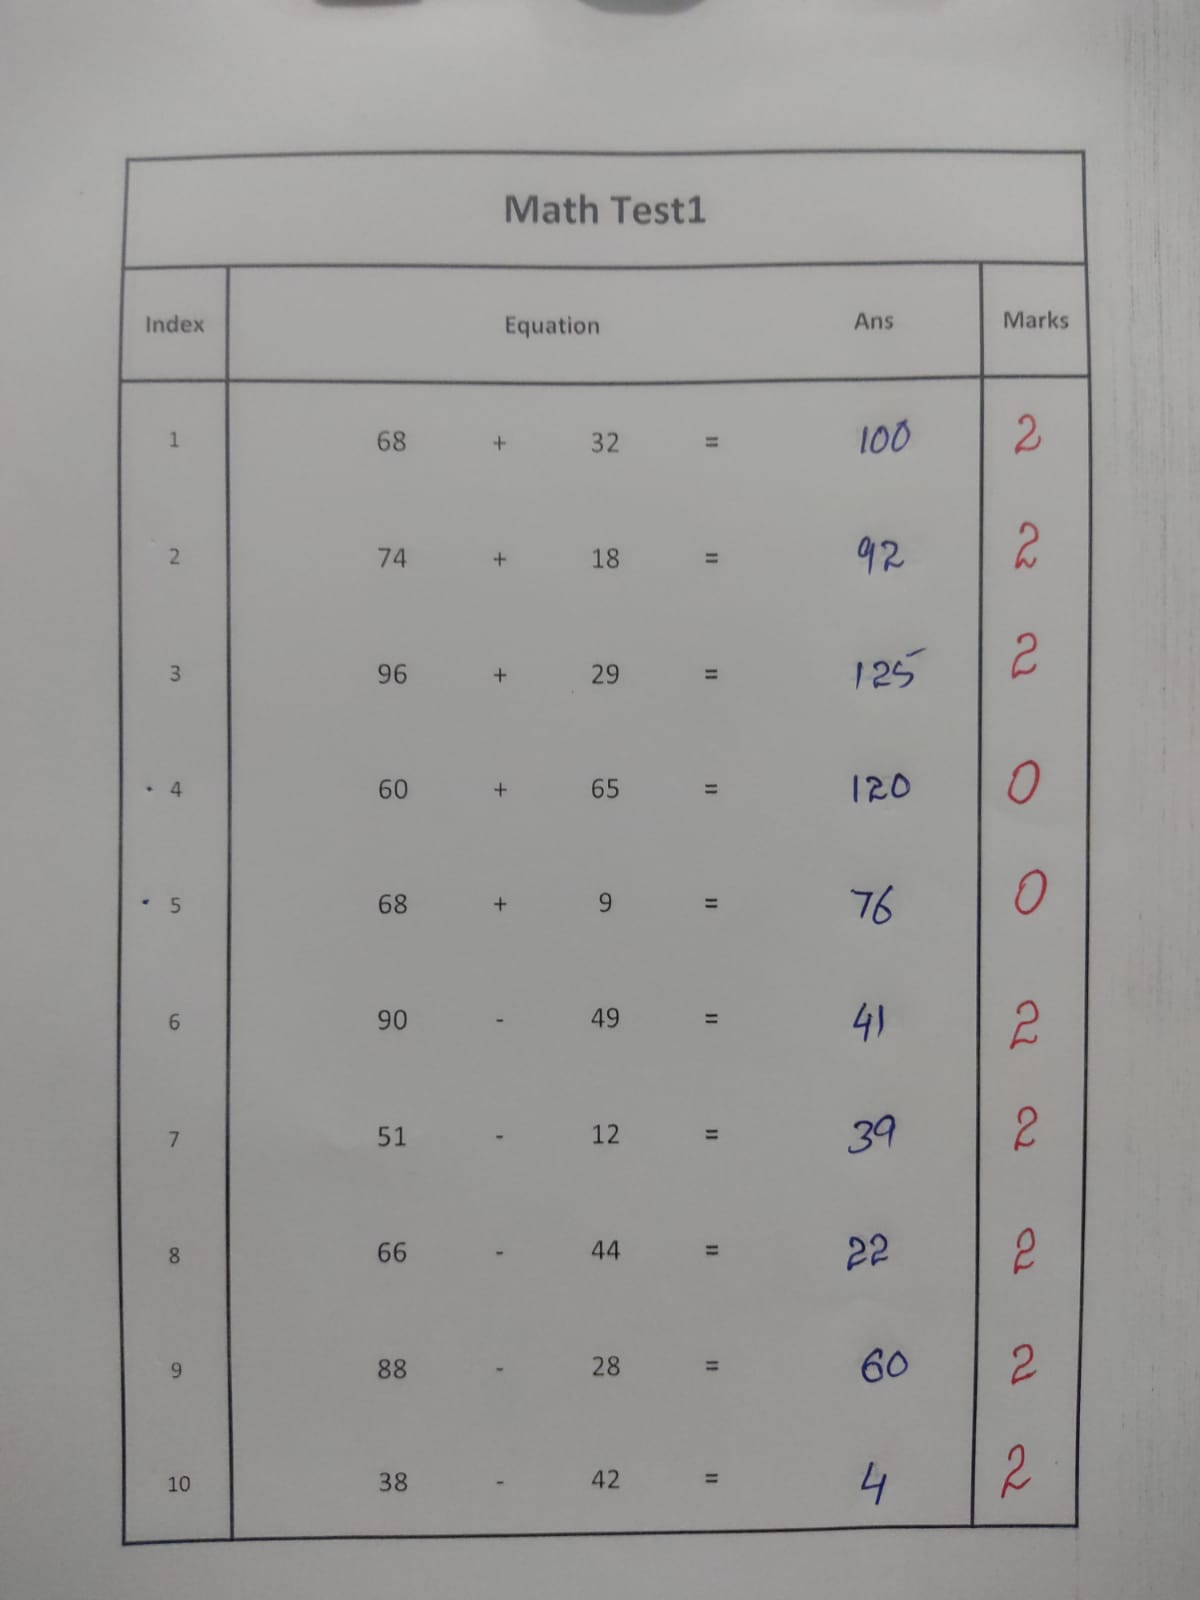 Math Test1
Index Equation Ans Marks
1 68 + 32 = 100 2
2 74 + 18 = 92 2
3 96 + 29 = 125 2
4 60 + 65 = 120 0
5 68 + 9 = 76 0
6 90 - 49 = 41 2
7 51 - 12 = 39 2
8 66 - 44 = 22 2
9 88 - 28 = 60 2
10 38 - 42 = 4 2